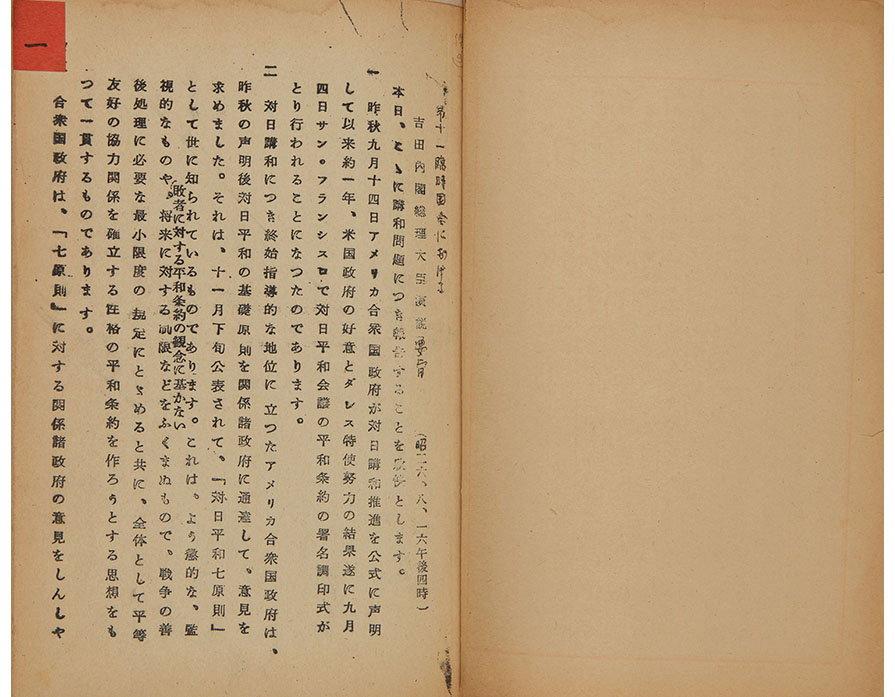 一
第十一臨時国会における
吉田内閣総理大臣演説要旨 (昭二六、八、一六午後四時)
本日、ここに講和問題につき報告することを欣快とします。
一 昨秋九月十四日アメリカ合衆国政府が対日講和推進を公式に声明
して以来約一年、米国政府の好意とダレス特使努力の結果遂に九月
四日サン・フランシスコで対日平和会議の平和条約の署名調印式が
とり行われることになつたのであります。
二 対日講和につき終始指導的な地位に立つたアメリカ合衆国政府は、
昨秋の声明後対日平和の基礎原則を関係諸政府に通達して、意見を
求めました。それは、十一月下旬公表されて、「対日平和七原則」
として世に知られているものであります。これは、よう懲的な、監
敗者に対する平和条約の観念に基かない
視的なものや、将来に対する制限などをふくまぬもので、戦争の善
後処理に必要な最小限度の規定にとゞめると共に、全体として平等
友好の協力関係を確立する性格の平和条約を作ろうとする思想をも
つて一貫するものであります。
合衆国政府は、「七原則」に対する関係諸政府の意見をしんしや